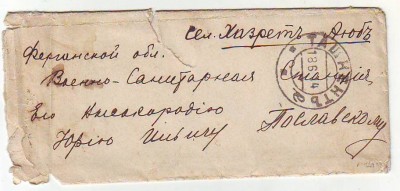 сел. Хазретъ-Аюбъ
Ферганской обл.
Военно-Санитарная Станція
Его Высокородію
Юрію Ильичу Пославскому
ТАШКЕНТЪ